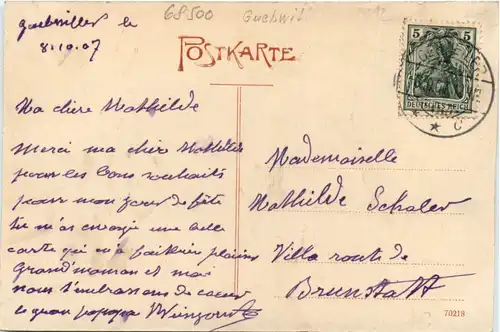 Guebwiller le
8.10.07
68500 Guebwil
POSTKARTE
5 5
DEUTSCHES REICH
C
Ma chere Mathilde
Merci ma cher Mathilde
pour les bons souhaits
pour mon jour de fête
tu m'as envoyé une belle
carte qui m'a fait bien plaisir
Grand'maman et moi
nous t'embrassons de coeur
Mademoiselle
Mathilde Schaler
Villa route de
Brunstatt
70218